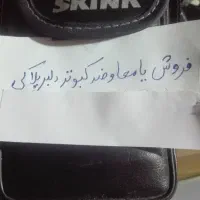 SKINK
فروش یا معاوضه کبوتر دلبر پلاکی